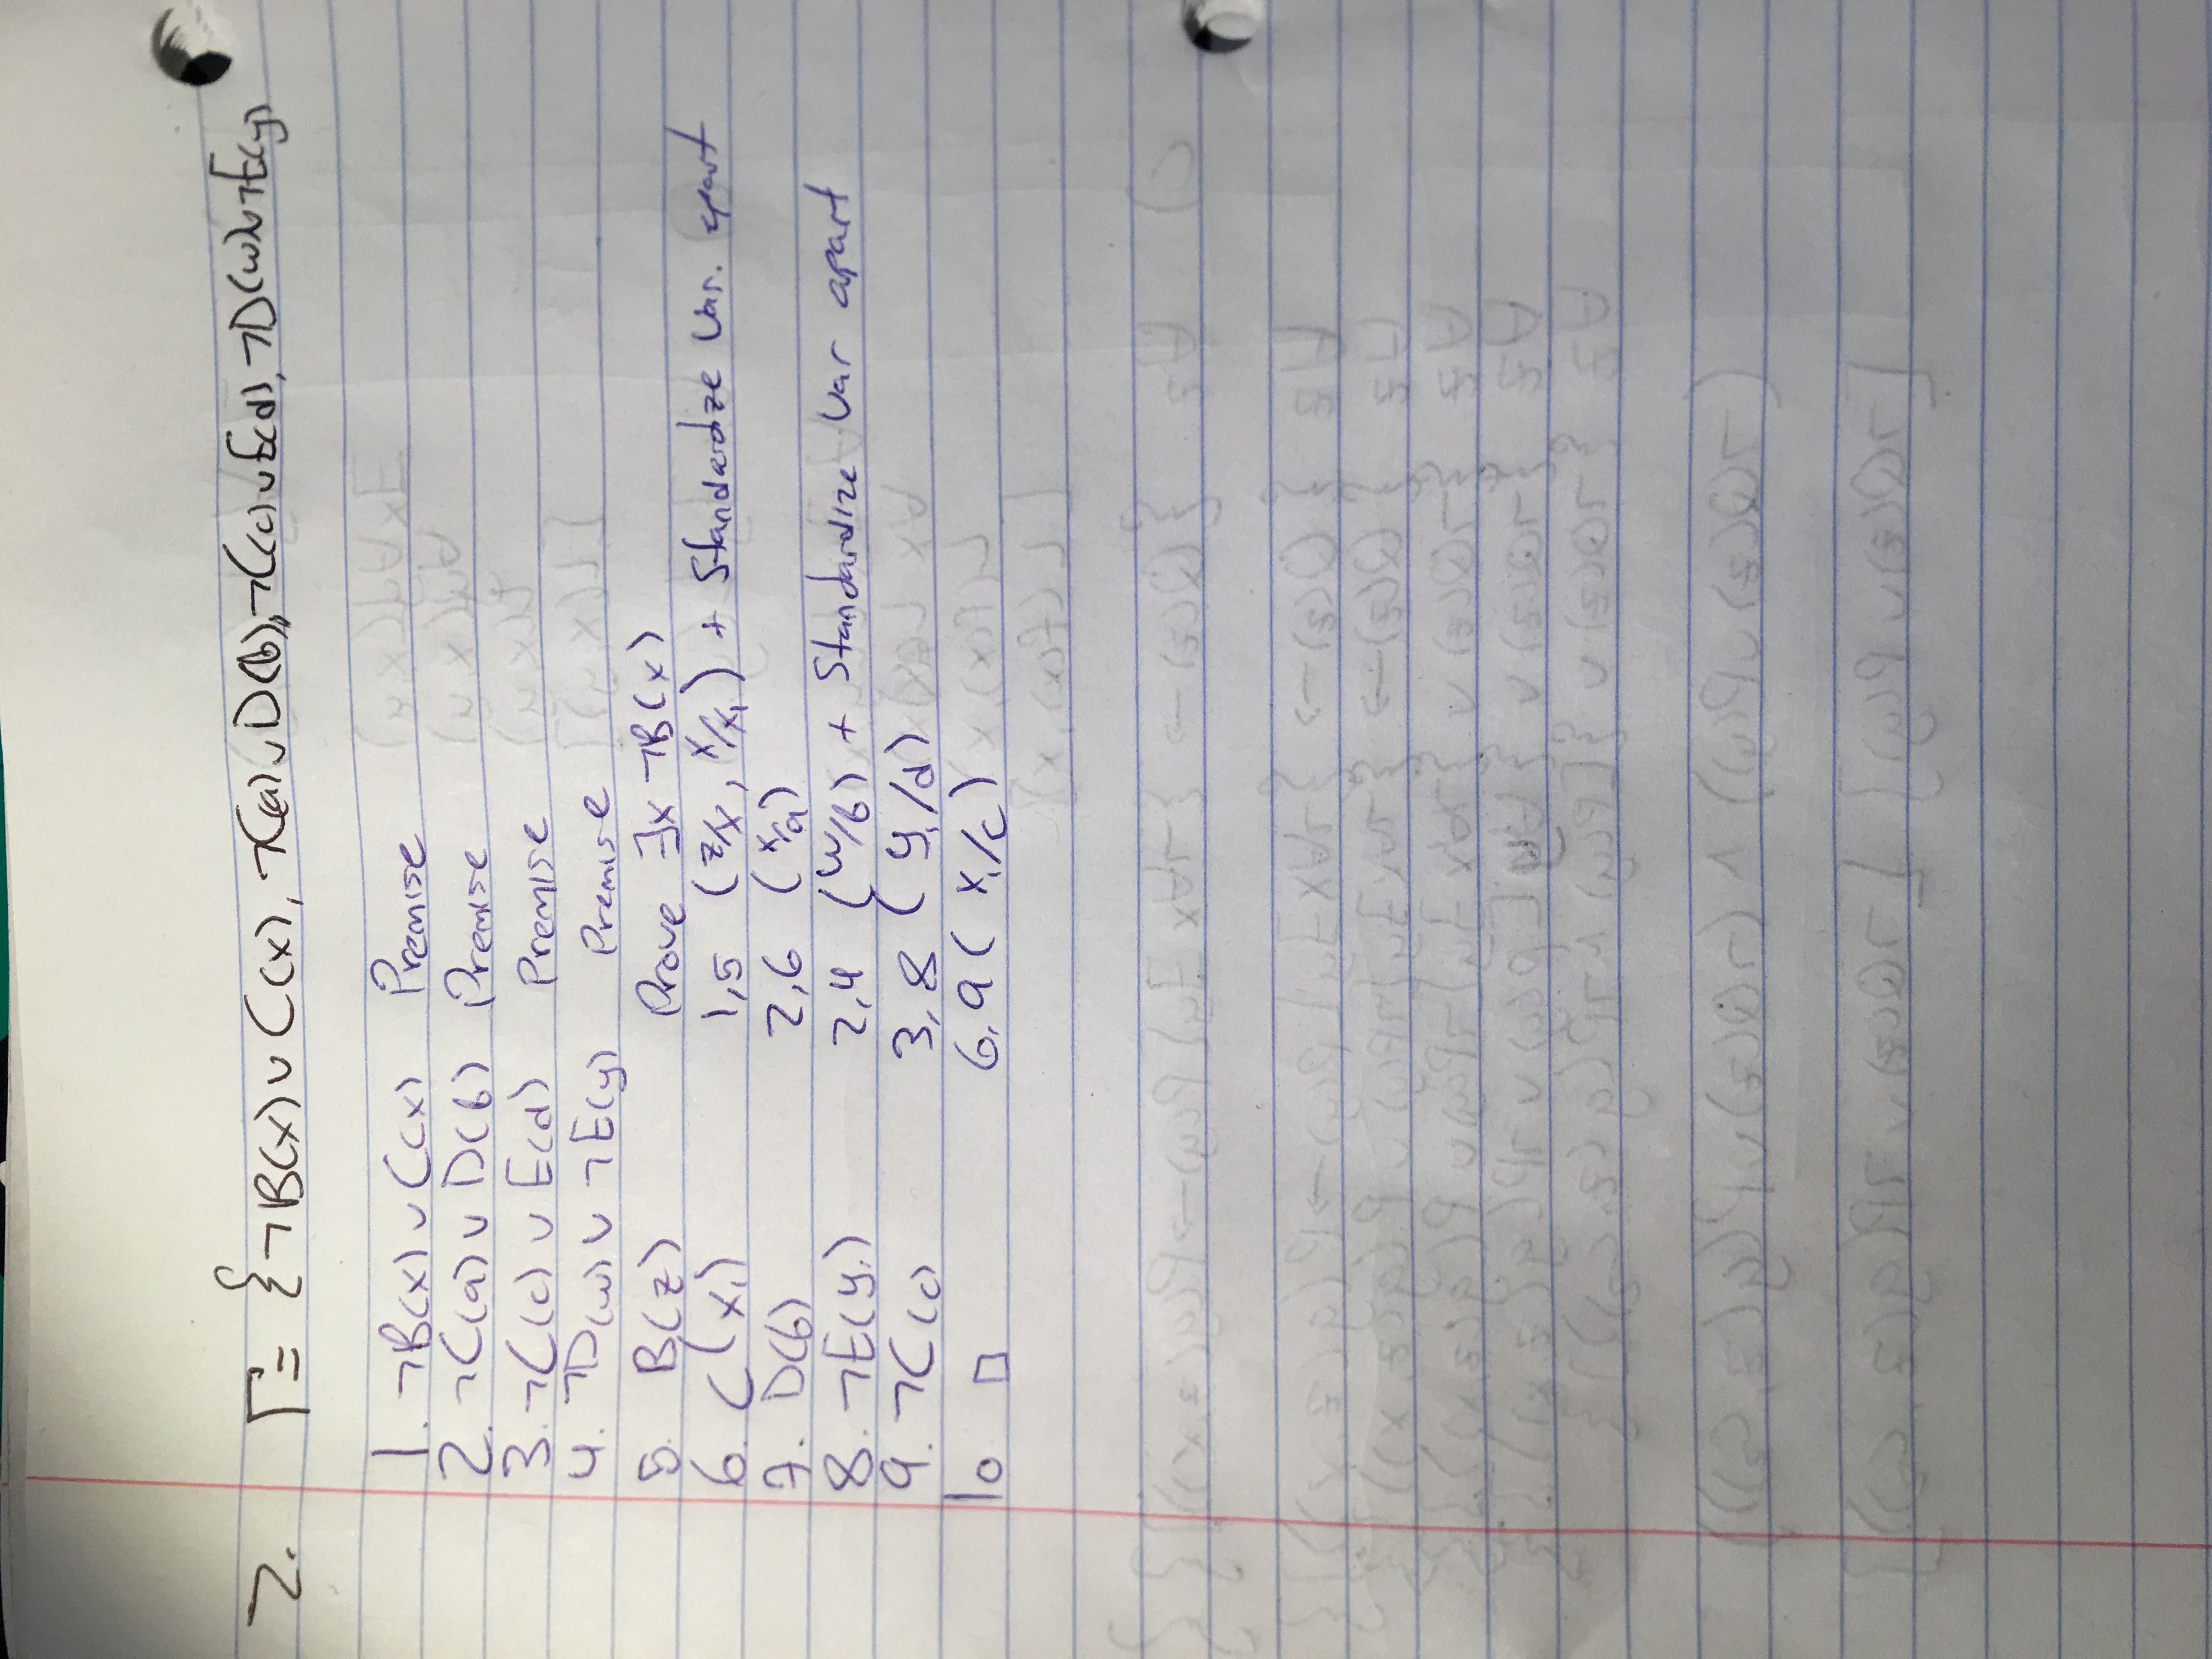 2. Γ = { ¬B(x) ∨ C(x), ¬C(a) ∨ D(b), ¬C(c) ∨ E(d), ¬D(w) ∨ ¬E(y)
1. ¬B(x) ∨ C(x) Premise
2. ¬C(a) ∨ D(b) Premise
3. ¬C(c) ∨ E(d) Premise
4. ¬D(w) ∨ ¬E(y) Premise
5. B(z) Prove ∃x ¬B(x)
6. C(x₁) 1,5 (z/x, x/x₁) + Standardize Var. apart
7. D(b) 2,6 (x/a)
8. ¬E(y₁) 2,4 (w/b) + Standardize Var apart
9. ¬C(c) 3,8 (y₁/d)
10 □ 6,9 (x₁/c)